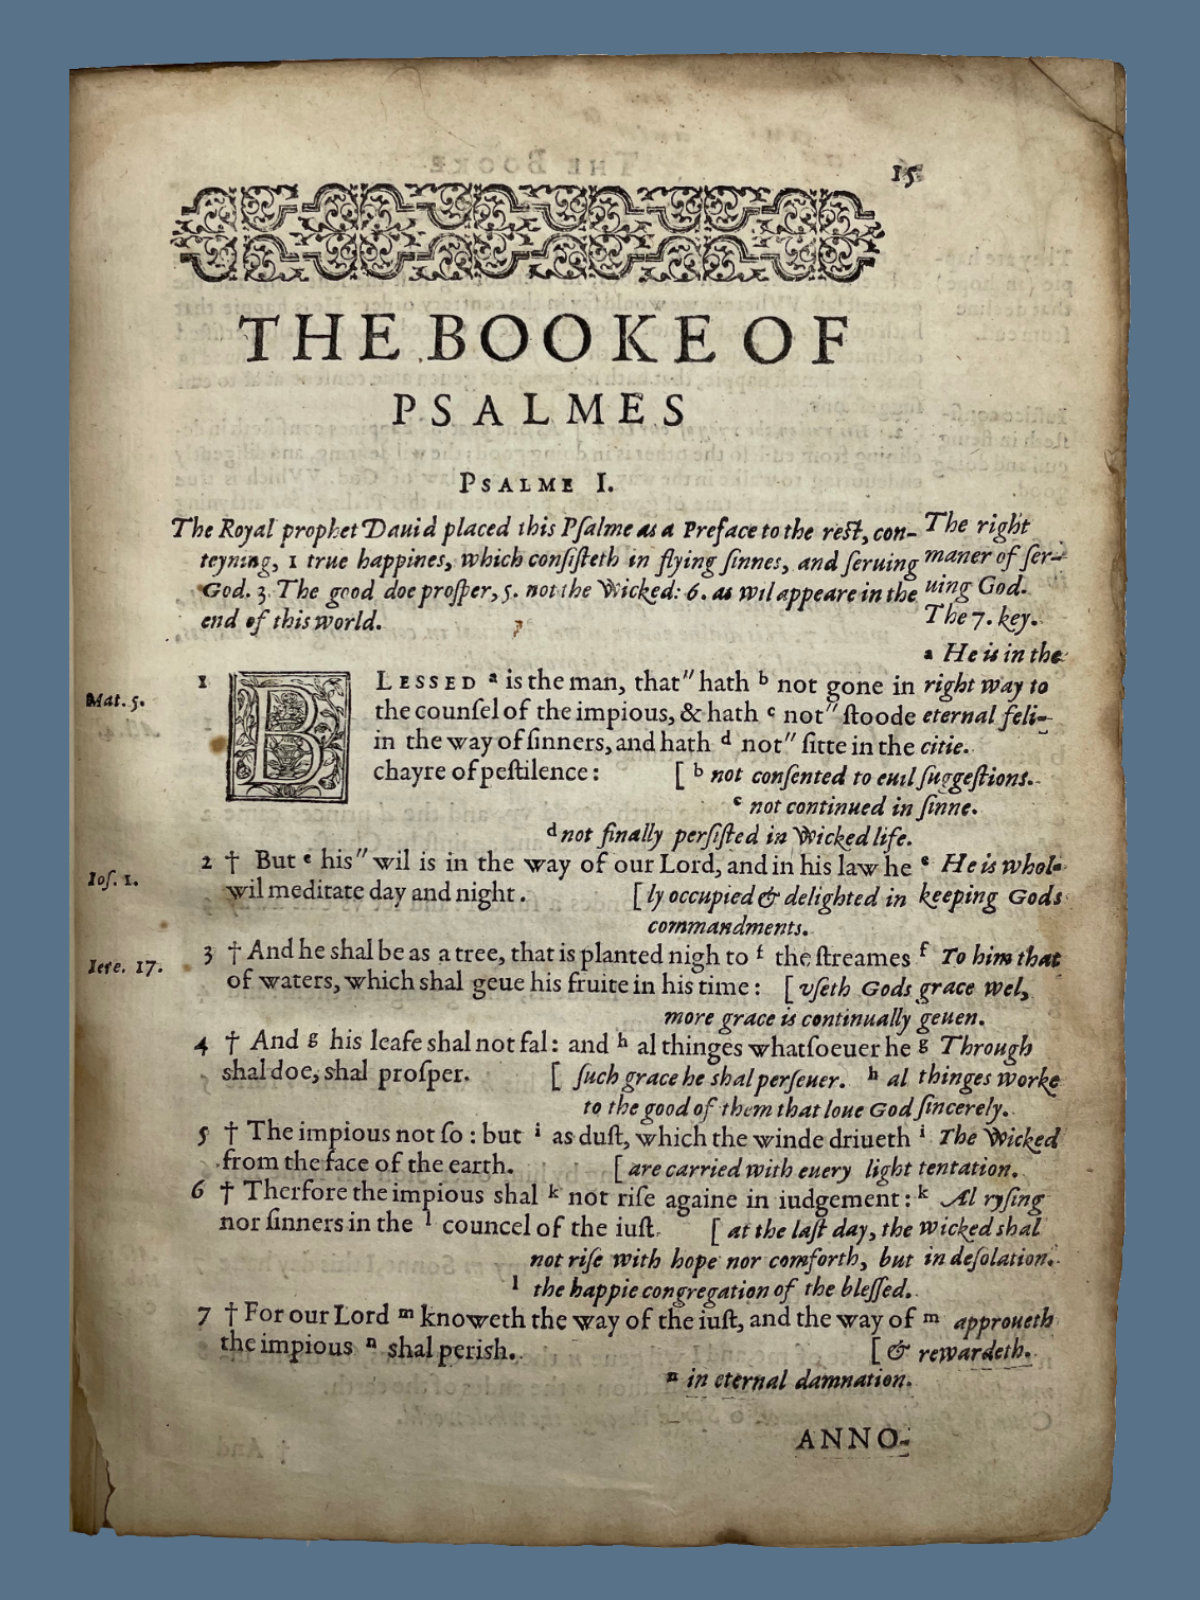 15
THE BOOKE OF
PSALMES
PSALME I.
The Royal prophet Dauid placed this Pſalme as a Preface to the reſt, con-
teyning, 1 true happines, which conſiſteth in flying ſinnes, and ſeruing
God. 3 The good doe proſper, 5. not the Wicked: 6. as wil appeare in the
end of this world.
The right
maner of ſer-
uing God.
The 7. key.
a He is in the
Mat. 5.
1 BLESSED a is the man, that" hath b not gone in right way to
the counſel of the impious, & hath c not" ſtoode eternal feli-
in the way of ſinners, and hath d not" ſitte in the citie.
chayre of peſtilence: [ b not conſented to euil ſuggeſtions.
c not continued in ſinne.
d not finally perſiſted in Wicked life.
2 † But e his" wil is in the way of our Lord, and in his law he e He is whol-
Ioſ. 1.
wil meditate day and night. [ ly occupied & delighted in keeping Gods
commandments.
3 † And he shal be as a tree, that is planted nigh to f the ſtreames f To him that
Iere. 17.
of waters, which shal geue his fruite in his time: [ vſeth Gods grace wel,
more grace is continually geuen.
4 † And g his leafe shal not fal: and h al thinges whatſoeuer he g Through
shal doe, shal proſper. [ ſuch grace he shal perſeuer. h al thinges worke
to the good of them that loue God ſincerely.
5 † The impious not ſo: but i as duſt, which the winde driueth i The Wicked
from the face of the earth. [ are carried with euery light tentation.
6 † Therfore the impious shal k not riſe againe in iudgement: k Al ryſing
nor ſinners in the l councel of the iuſt. [ at the laſt day, the wicked shal
not riſe with hope nor comforth, but in deſolation.
l the happie congregation of the bleſſed.
7 † For our Lord m knoweth the way of the iuſt, and the way of m approueth
the impious n shal perish. [ & rewardeth.
n in eternal damnation.
ANNO-